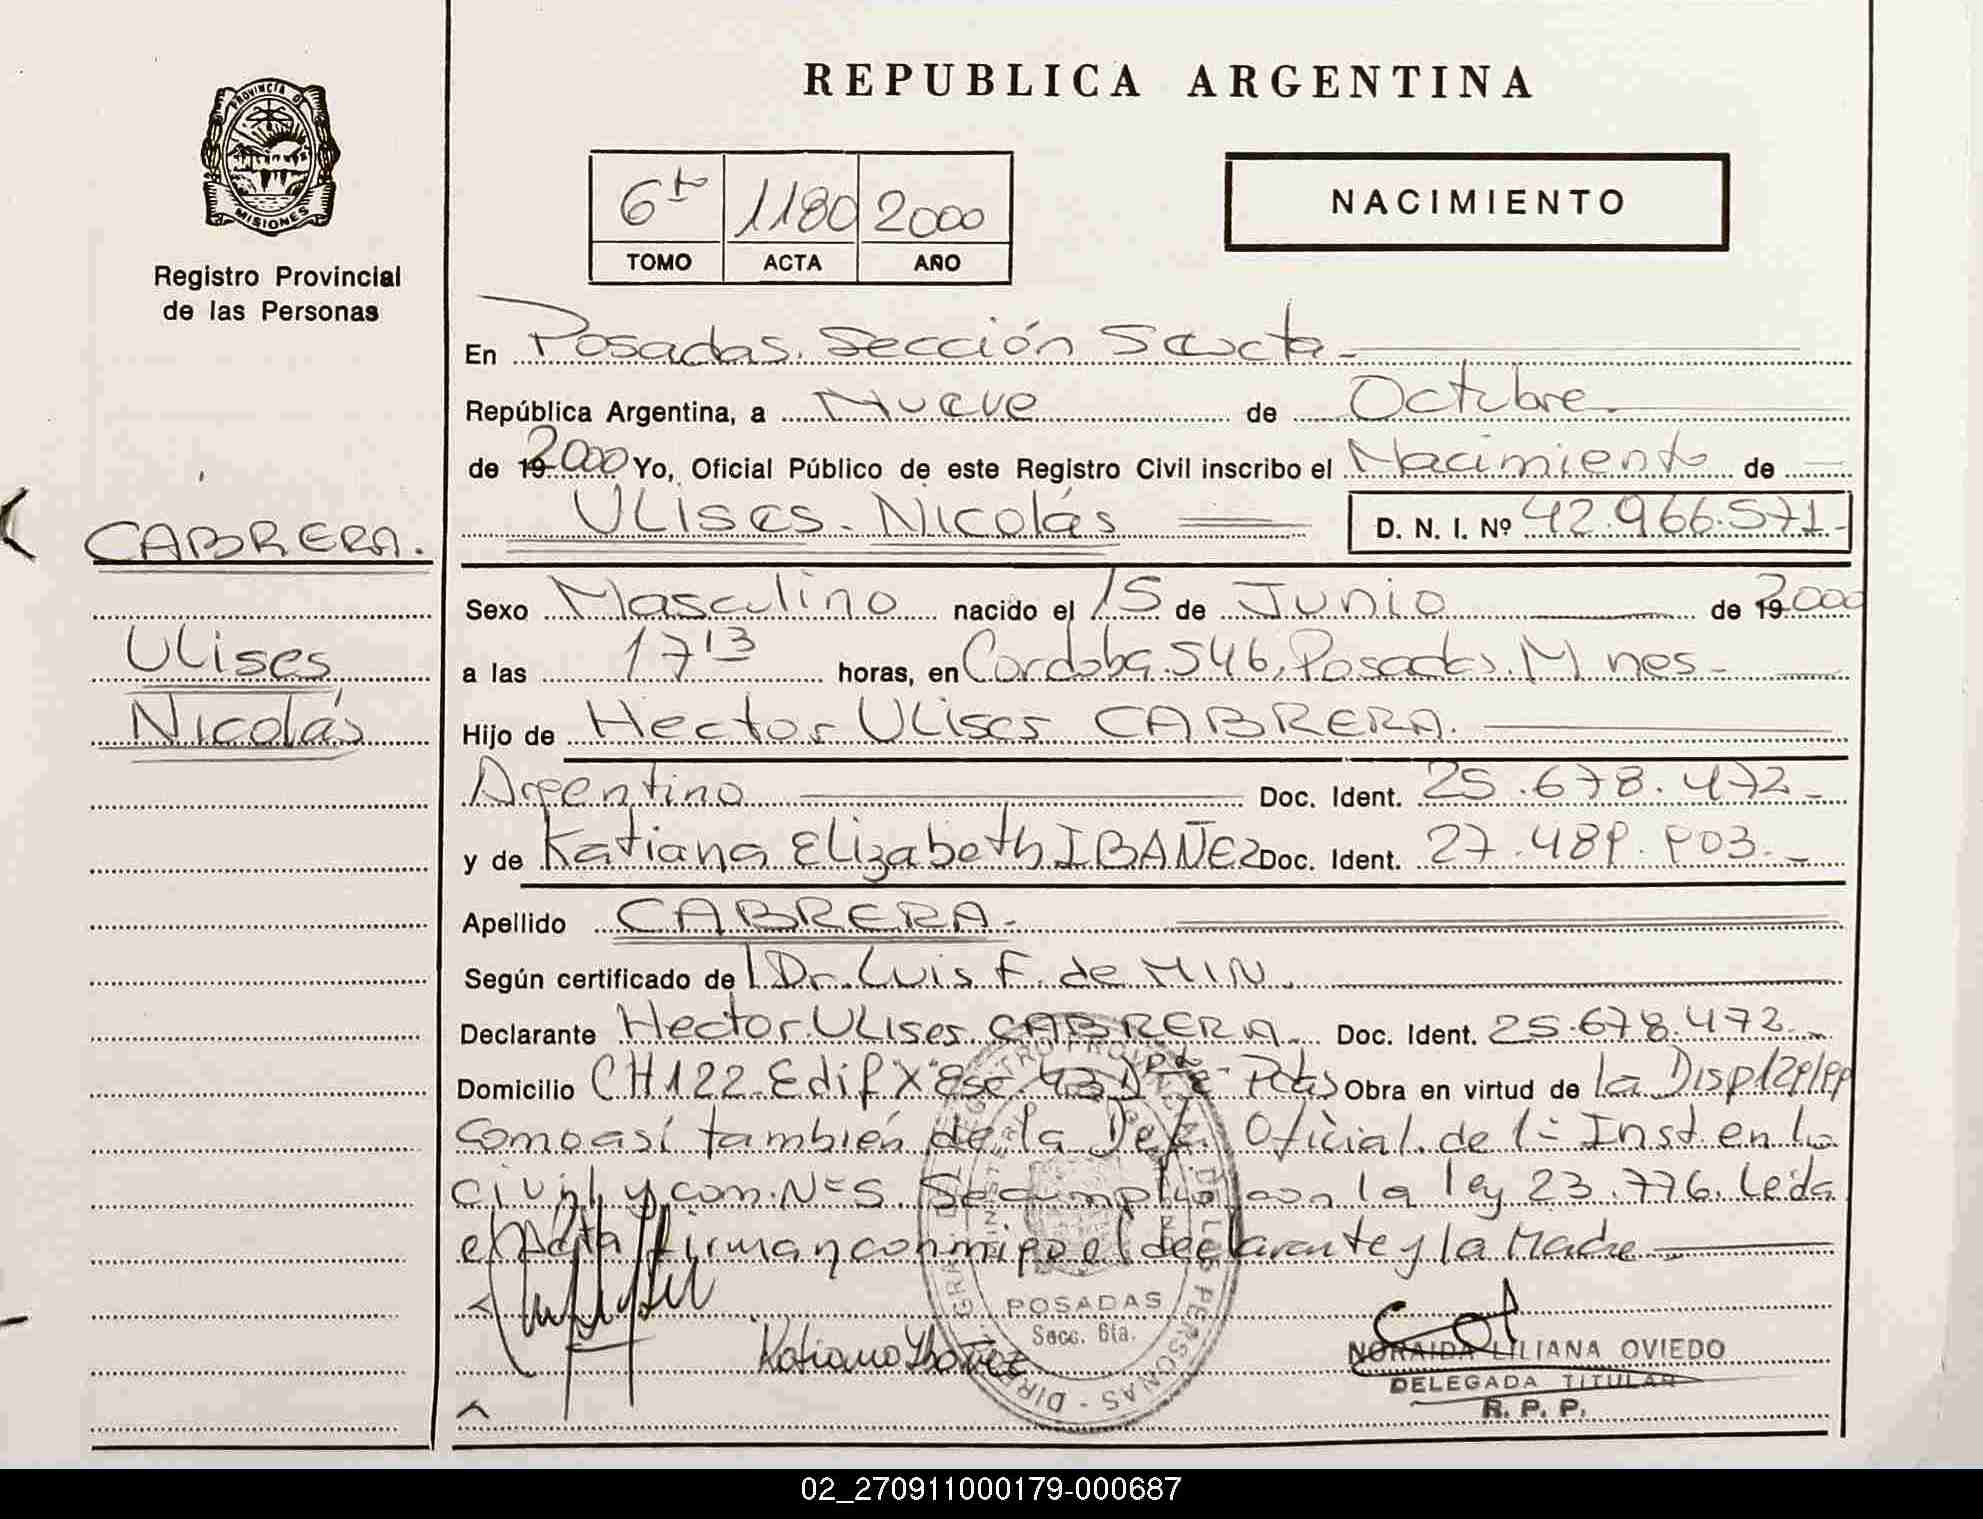 REPUBLICA ARGENTINA
PROVINCIA D
MISIONES
Registro Provincial
de las Personas
6to 1180 2000
TOMO ACTA AÑO
NACIMIENTO
En Posadas. Sección Sexta
República Argentina, a Nueve de Octubre
de 19 2000 Yo, Oficial Público de este Registro Civil inscribo el Nacimiento de
Ulises Nicolás D. N. I. Nº 42.966.571
CABRERA.
Ulises
Nicolás
Sexo Masculino nacido el 15 de Junio de 19 2000
a las 17 13 horas, en Cordoba 546, Posadas. Mnes
Hijo de Hector Ulises CABRERA.
Argentino Doc. Ident. 25.678.472
y de Katiana Elizabeth IBAÑEZ Doc. Ident. 27.489.903.
Apellido CABRERA.
Según certificado del Dr. Luis F. de MIN.
Declarante Hector Ulises CABRERA Doc. Ident. 25.678.472.
Domicilio CH 122 Edif X Esc 43 Pdas Obra en virtud de la Disp
como así también de la Def. Oficial de 1º Inst. en lo
civil y com. Nº 5. Se cumplió con la ley 23.776. Leída
el Acta firman conmigo el declarante y la Madre
Katiana Ibañez
POSADAS
Secc. 6ta.
NORAIDA LILIANA OVIEDO
DELEGADA TITULAR
R. P. P.
02_270911000179-000687